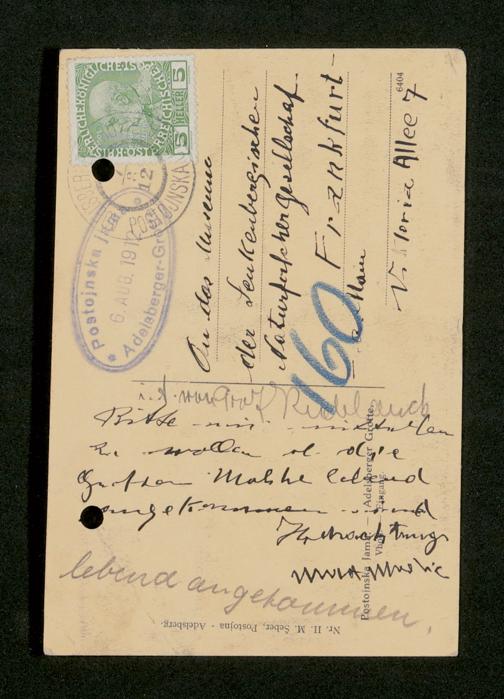 KAISERLICHEKÖNIGLICHE ÖSTERREICHISCHE POST
5 HELLER 5
Postojnska jama
6. AUG. 191
Adelsberger-Grotte
6404
An das Museum
der Senkenbergischen
Naturforscher Gesellschaf
Frankfurt
a. Main
Viktoria Allee 7
160
Bitte mir mitteilen
zu wollen ob die
Grotten Molche lebend
angekommen sind
Hochachtungs
lebend angekommen.
Postojnska Jama. — Adelsberger Grotte.
Vhod. Eingang.
Nr. II. M. Šeber, Postojna - Adelsberg.